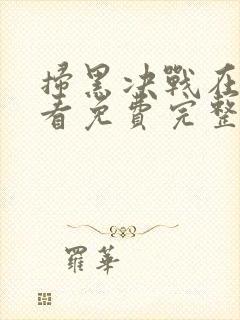 掃黑决戰在
看免費完整
羅華